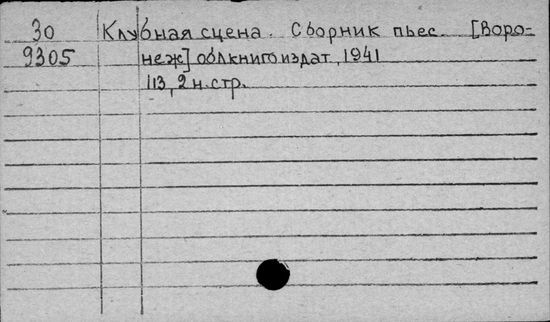 30 Клубная сцена. Сборник пьес. [Воро-
9305 неж] облкнигоиздат, 1941
113, 2 н. стр.